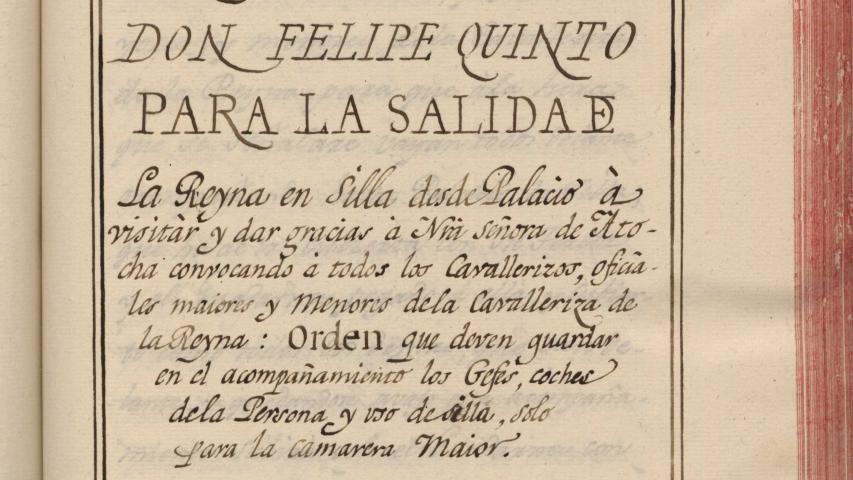 DON FELIPE QUINTO
PARA LA SALIDA DE
La Reyna en Silla desde Palacio à
visitàr y dar gracias à Nrã señora de Ato-
cha convocando à todos los Cavallerizos, oficia-
les maiores y Menores dela Cavalleriza de
la Reyna : Orden que deven guardar
en el acompañamiento los Gefes, coches
dela Persona y uso de silla, solo
para la camarera Maior.